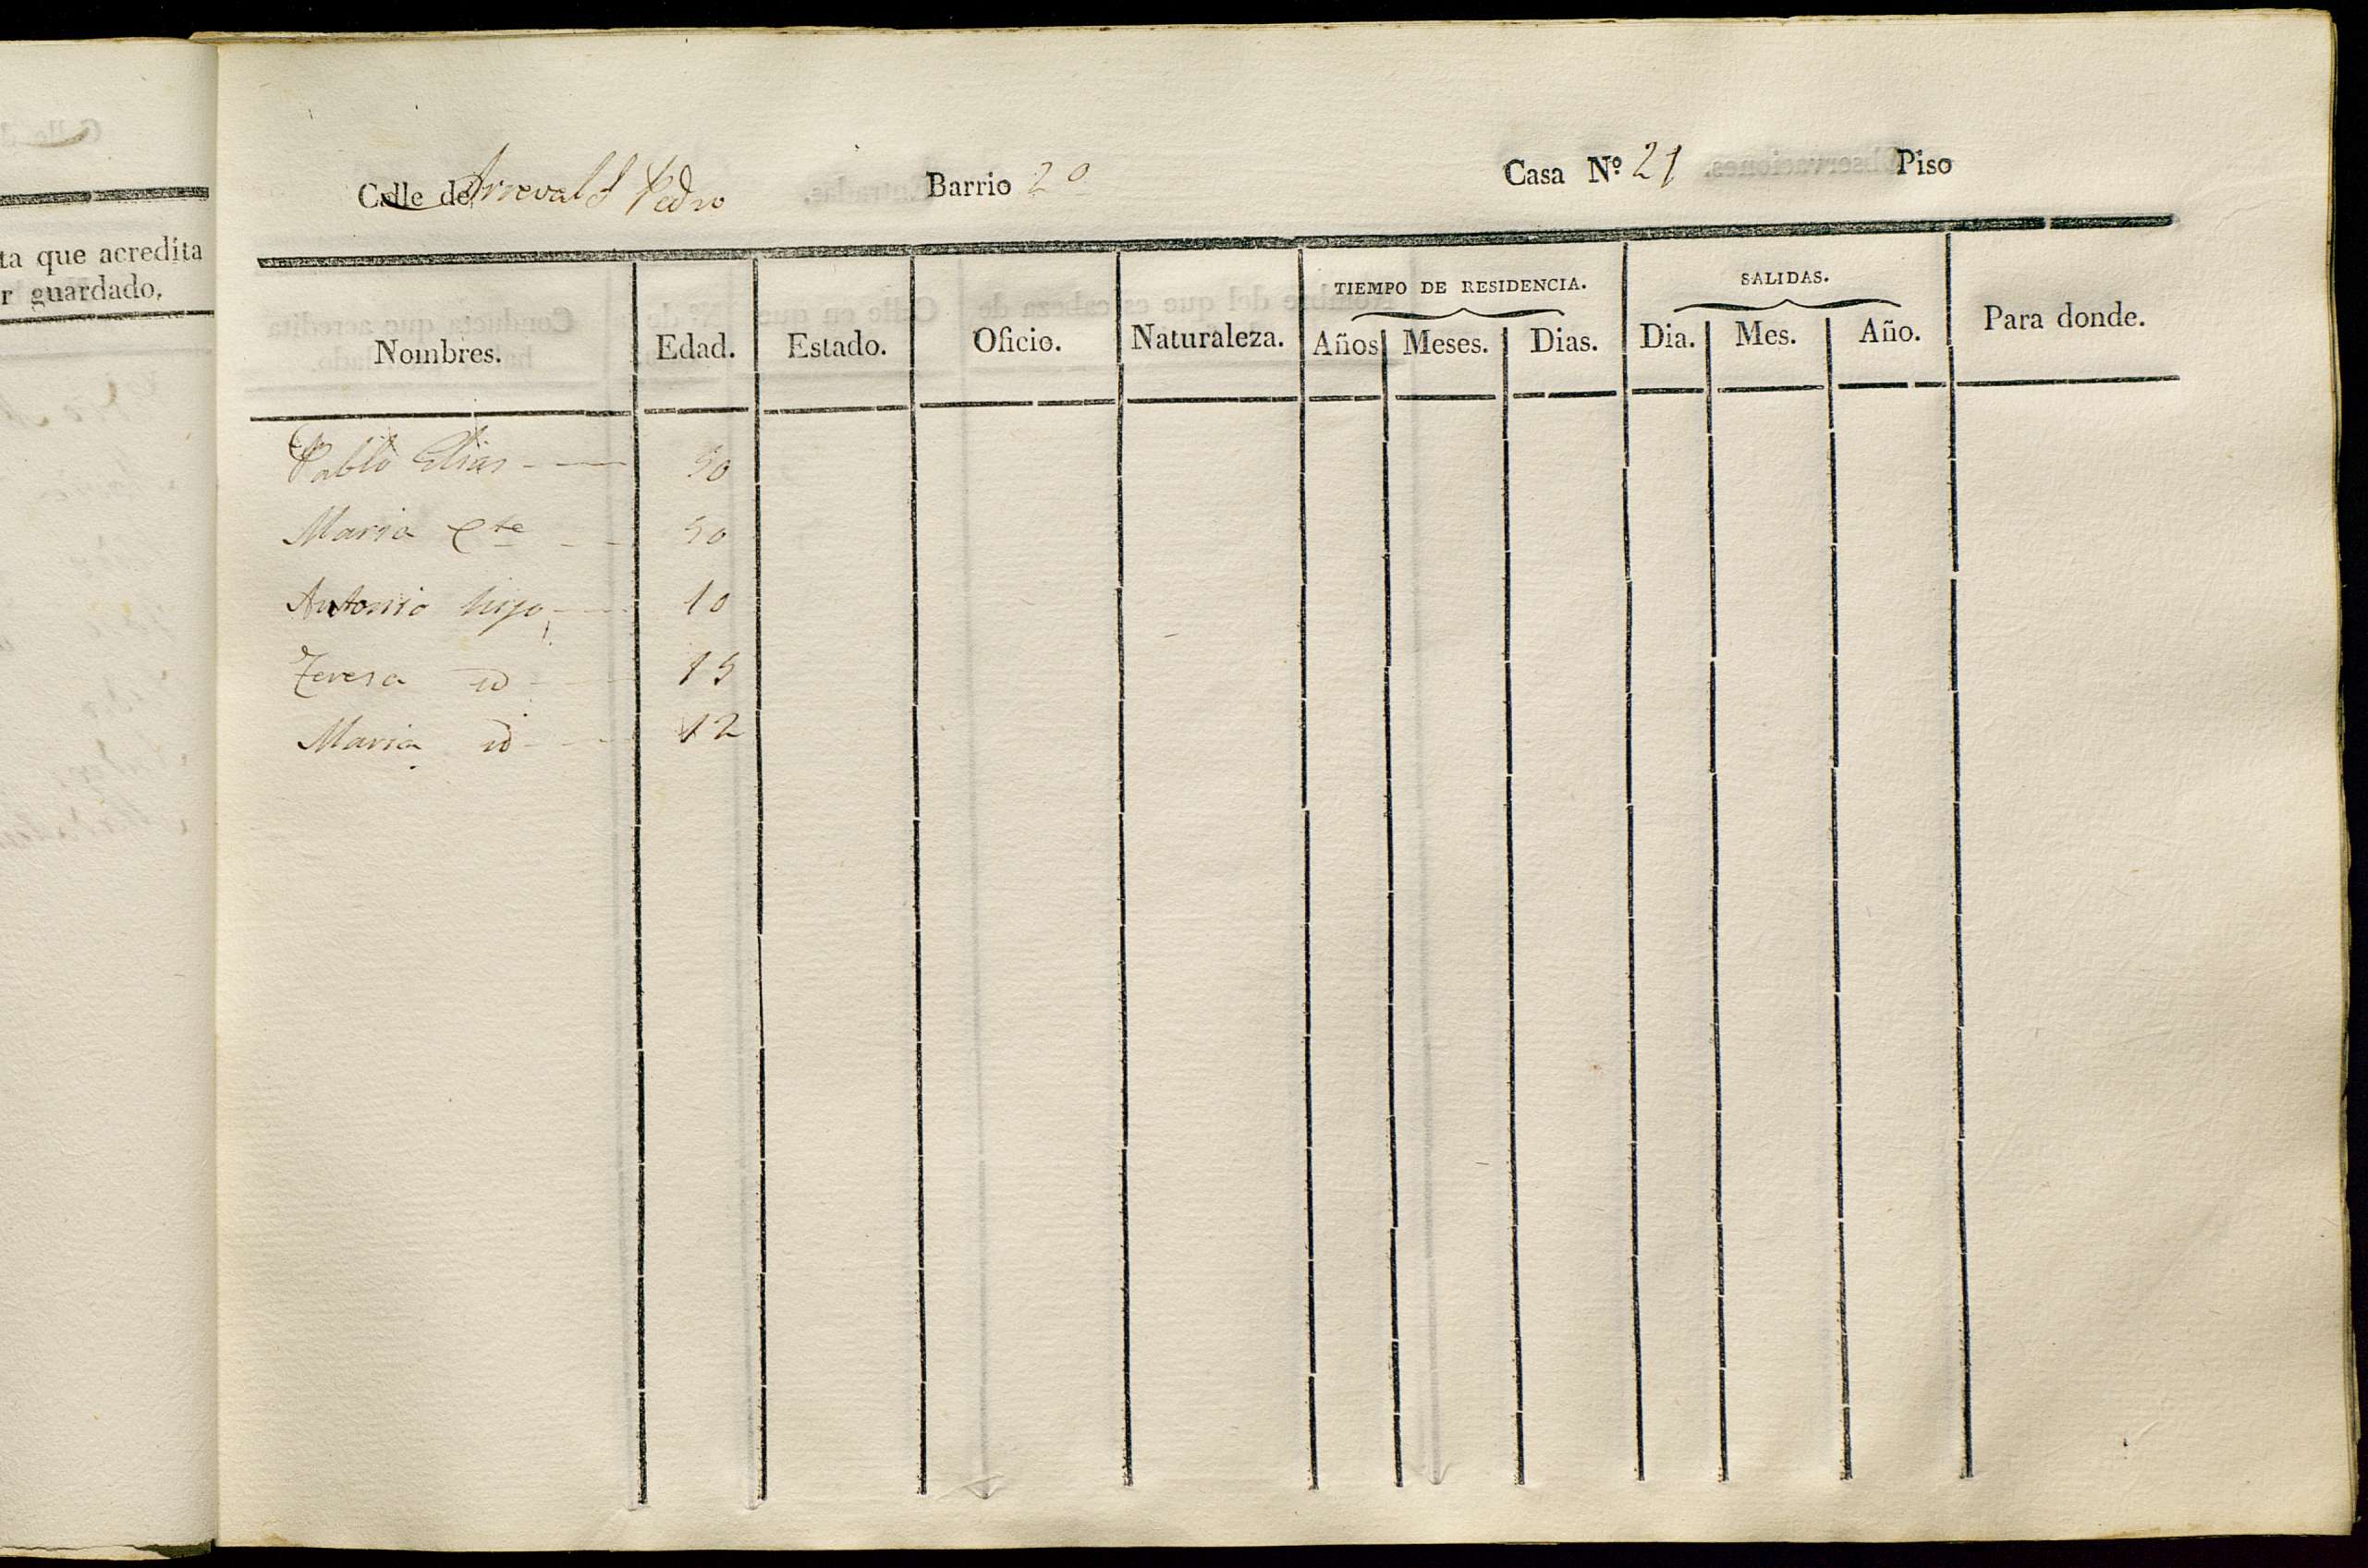 ta que acredita
r guardado,
Calle de Arreval S Pedro Barrio 2º Casa Nº 21 Piso
Nombres. Edad. Estado. Oficio. Naturaleza. TIEMPO DE RESIDENCIA. Años Meses. Dias. SALIDAS. Dia. Mes. Año. Para donde.
Pablo Elias 50
Maria Cte 50
Antonio hijo 10
Teresa id 15
Maria id 12